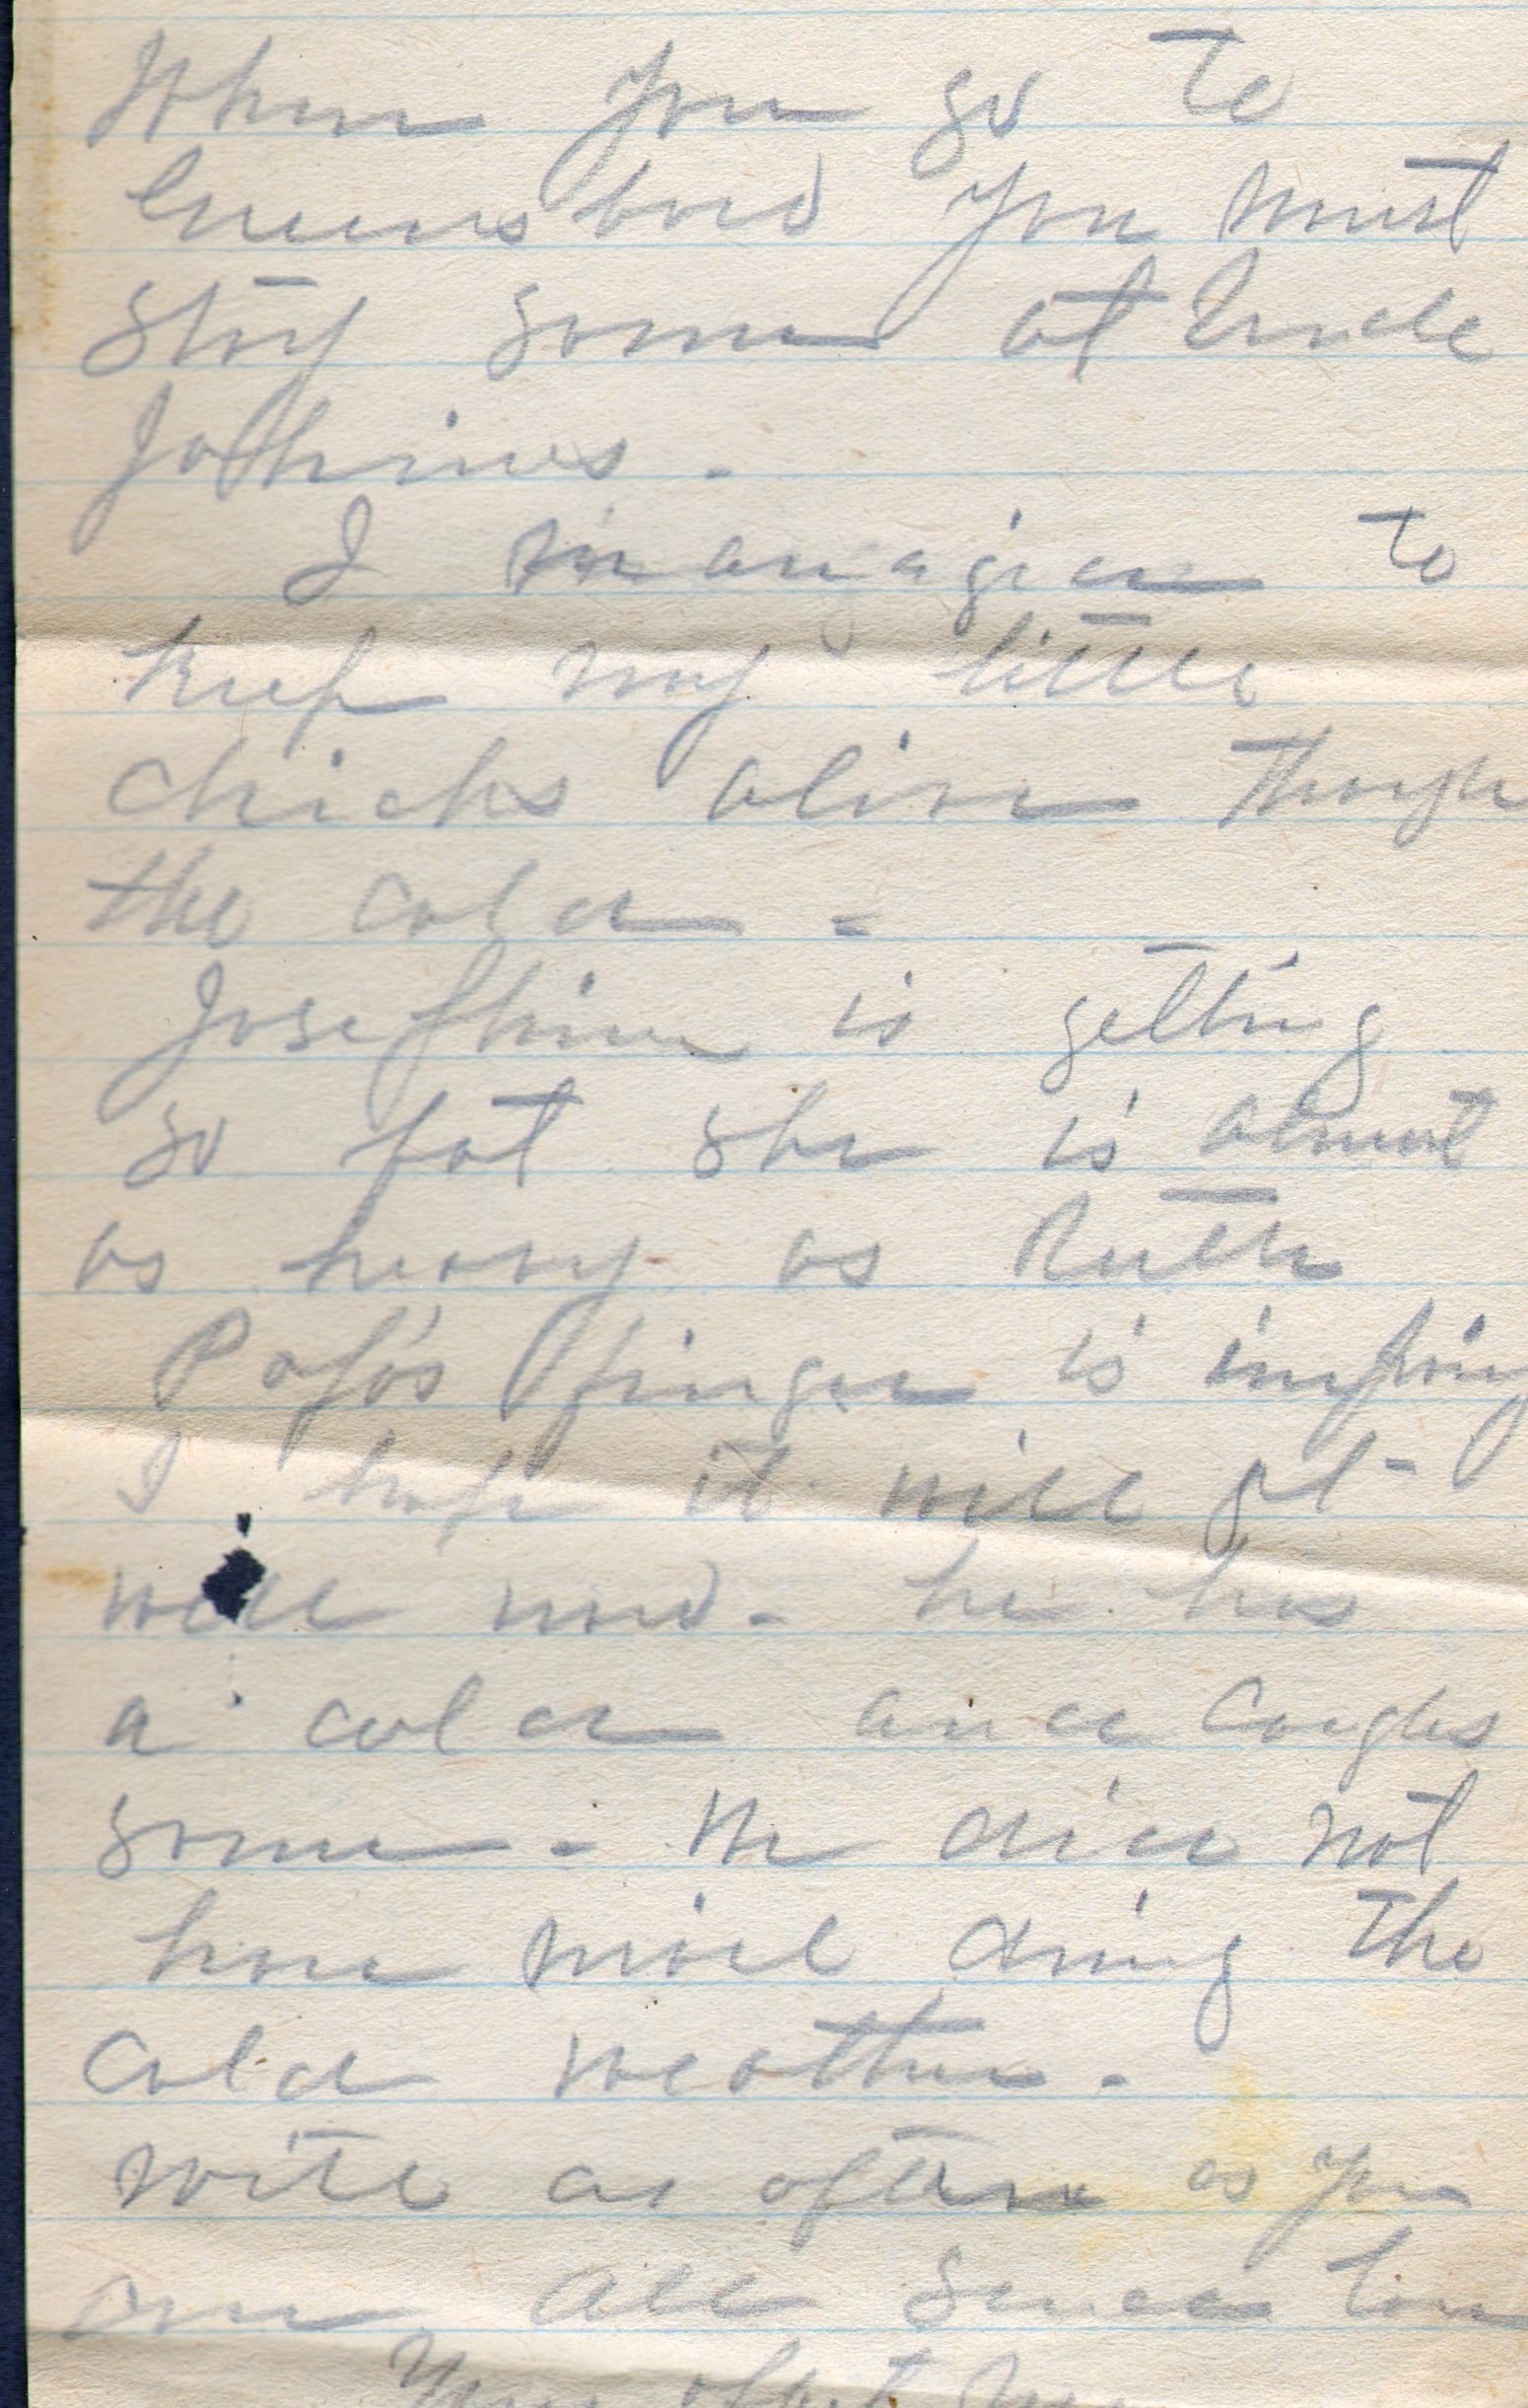 When you go to
Greensboro you must
stay some at Uncle
I managed to
keep my little
chicks alive though
the cold -
Josephine is getting
so fat she is almost
as heavy as Ruth
Papa's finger is improving
I hope it will get
well now - he has
a cold and coughs
some - We did not
have mail during the
cold weather.
write as often as you
can All send love
Your affect